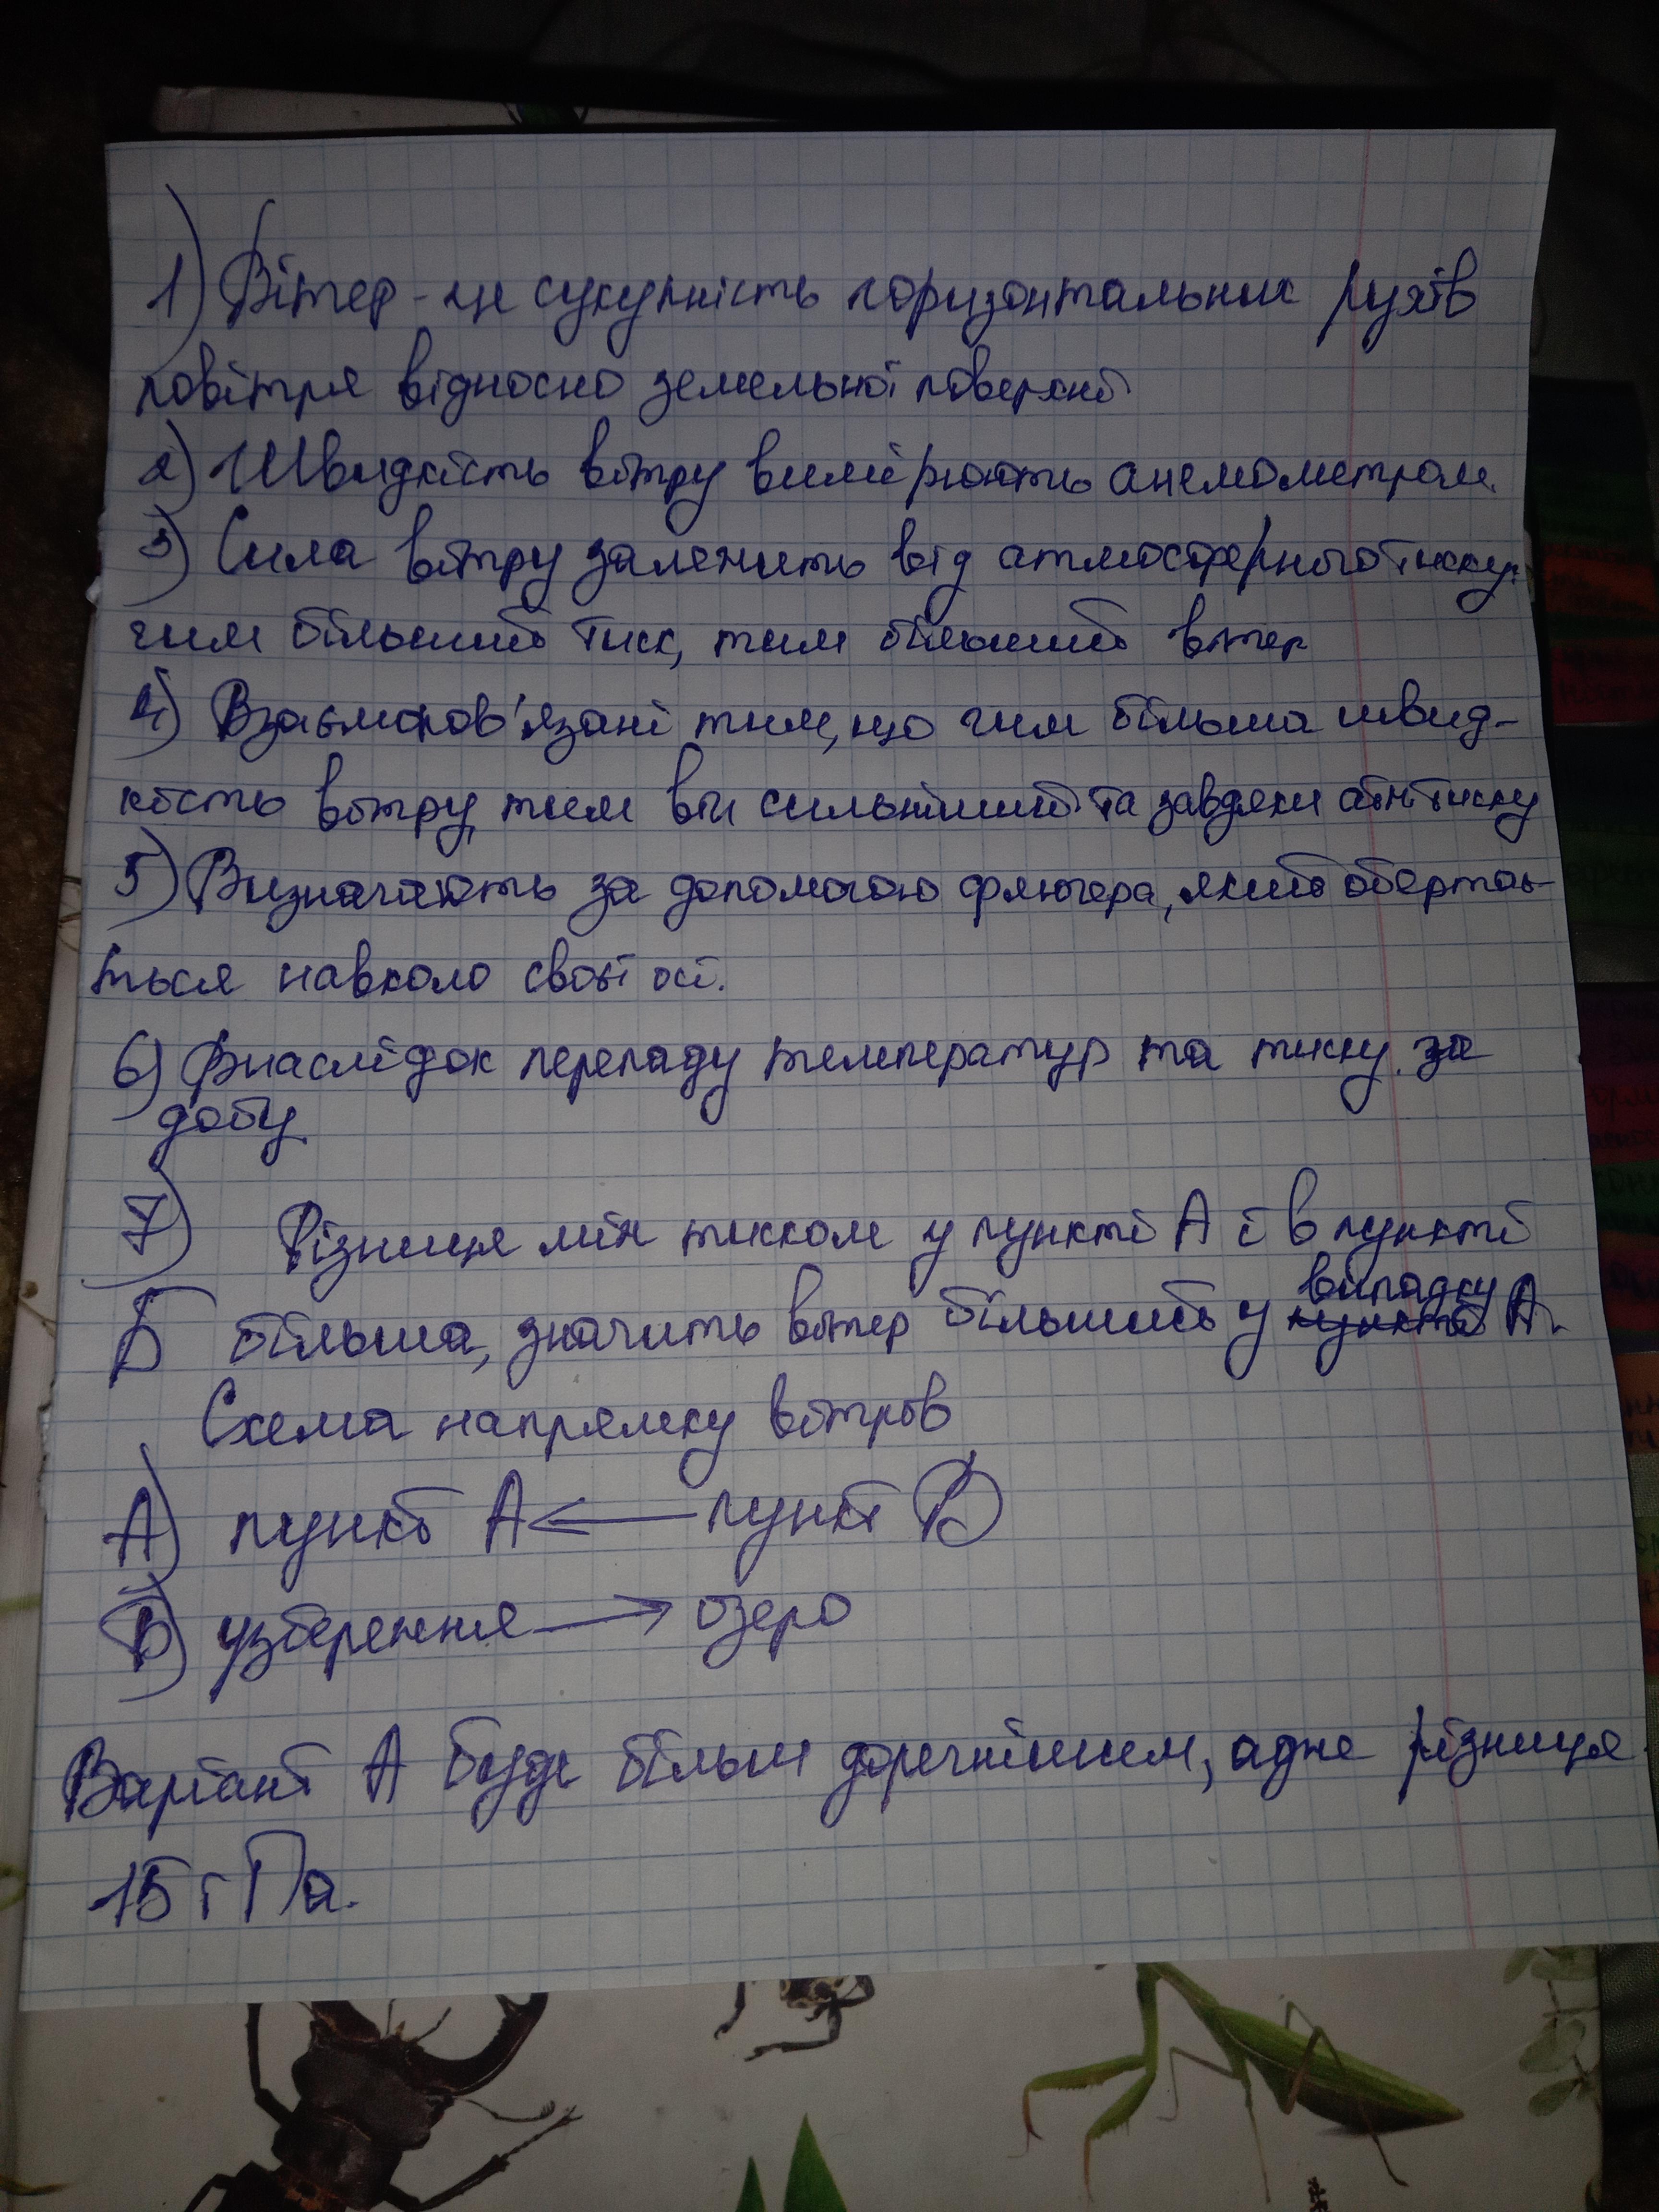 1) Вітер - це сукупність горизонтальних рухів
повітря відносно земельної поверхні
2) Швидкість вітру вимірюють анемометром.
3) Сила вітру залежить від атмосферного тиску:
чим більший тиск, тим більший вітер
4) Взаємопов'язані тим, що чим більша швид-
кість вітру, тим він сильніший та завдяки атм. тиску
5) Визначають за допомогою флюгера, який обертає-
ться навколо своєї осі.
6) Внаслідок перепаду температур та тиску за
добу
7) Різниця між тиском у пункті А і в пункті
Б більша, значить вітер більший у пункті випадку А.
Схема напрямку вітрів
А) пункт А ← пункт В
Б) узбережжя → озеро
Варіант А буде більш доречнішим, адже різниця
15 гПа.